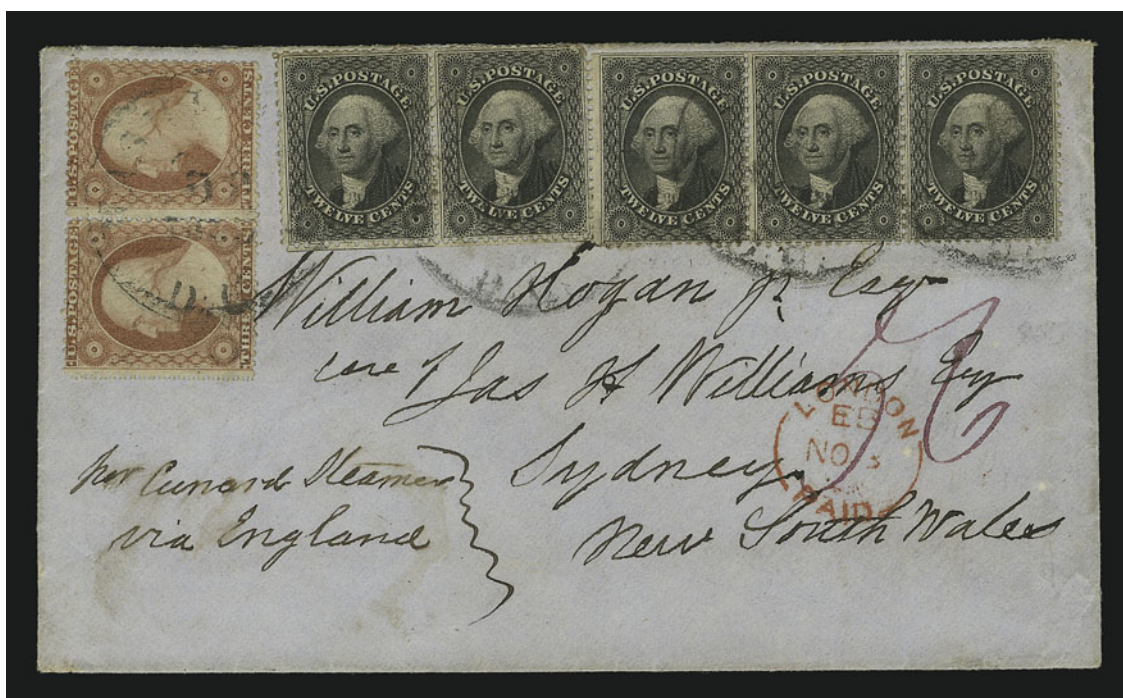 U.S. POSTAGE
THREE CENTS
U.S. POSTAGE
THREE CENTS
U.S. POSTAGE
TWELVE CENTS
U.S. POSTAGE
TWELVE CENTS
U.S. POSTAGE
TWELVE CENTS
U.S. POSTAGE
TWELVE CENTS
U.S. POSTAGE
TWELVE CENTS
William Hogan Jr. Esqr
care of Jas H Williams Esq
Sydney
New South Wales
per Cunard Steamer
via England
LONDON
NO
PAID